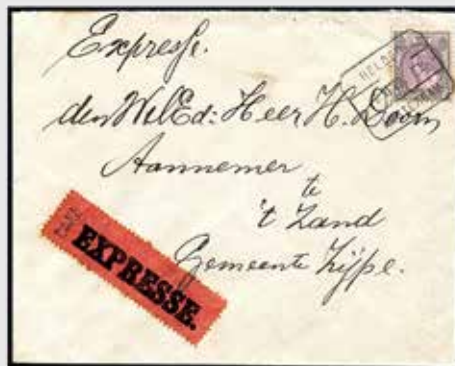 Expresse.
den WelEd: Heer H. Doorn
Aannemer
te
't Zand
Gemeente Zijpe.
EXPRESSE.
HELD